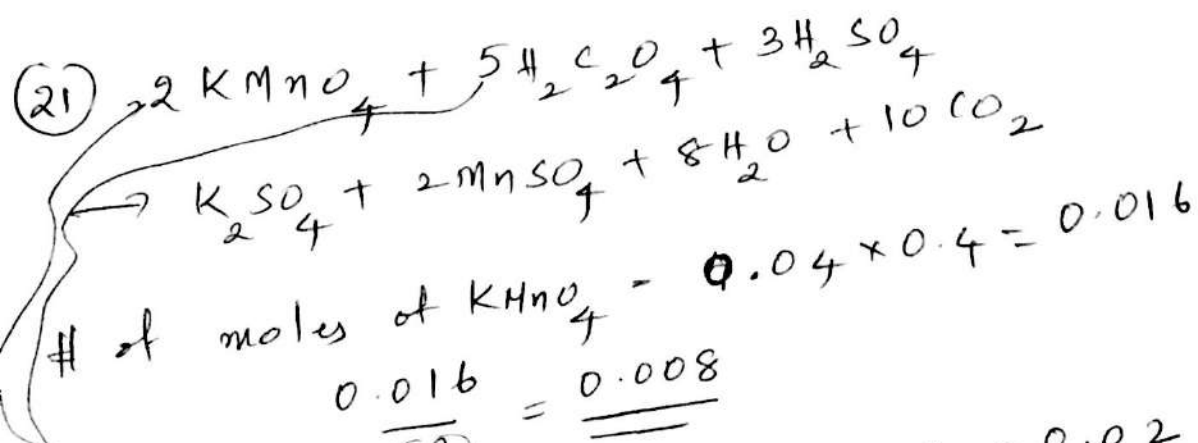 (21) 2 KMnO₄ + 5H₂C₂O₄ + 3H₂SO₄
→ K₂SO₄ + 2MnSO₄ + 8H₂O + 10CO₂
# of moles of KMnO₄ - 0.04 × 0.4 = 0.016
0.016 = 0.008
0.02